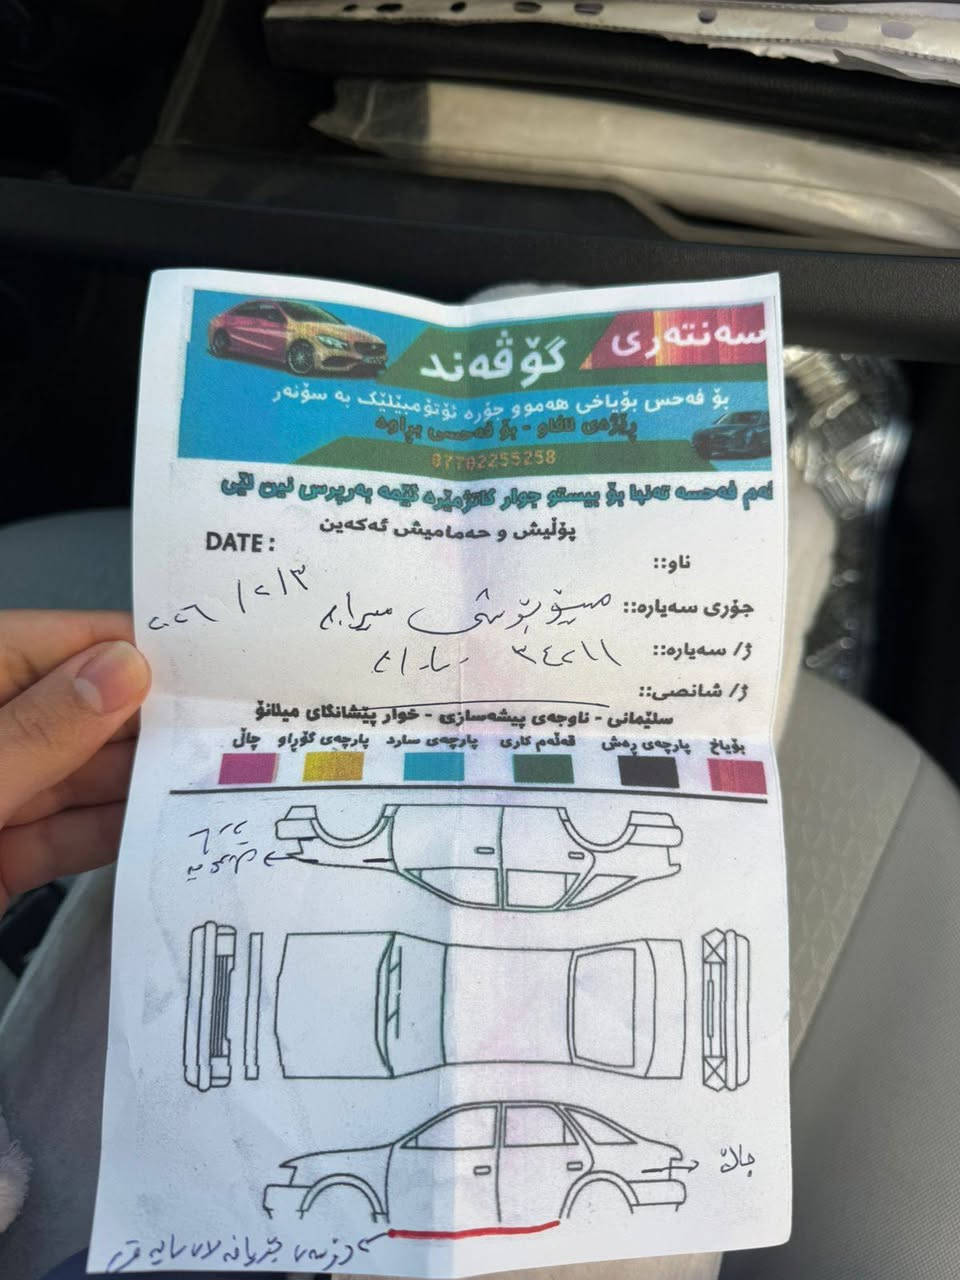 سەنتەری گۆڤەند
بۆ فەحس بۆیاخی هەموو جۆرە ئۆتۆمبێلێک بە سۆنەر
ڕێژەی لافاو - بۆ فەحسی براوە
07702255258
ئەم فەحسە تەنها بۆ بیستو جوار کاتژمێرە ئێمە بەرپرس نین لێی
پۆڵیش و حەمامیش ئەکەین
DATE :
ناو::
٢٠٢٦ / ٢ / ٣
جۆری سەیارە:: میرۆبۆشی میراج
ژ/ سەیارە:: ٣٤٢١١
ژ/ شانصی::
سلێمانی - ناوجەی پیشەسازی - خوار پێشانگای میلانۆ
بۆیاخ پارچەی ڕەش قەڵەم کاری پارچەی سارد پارچەی گۆڕاو چاڵ
چاڵە